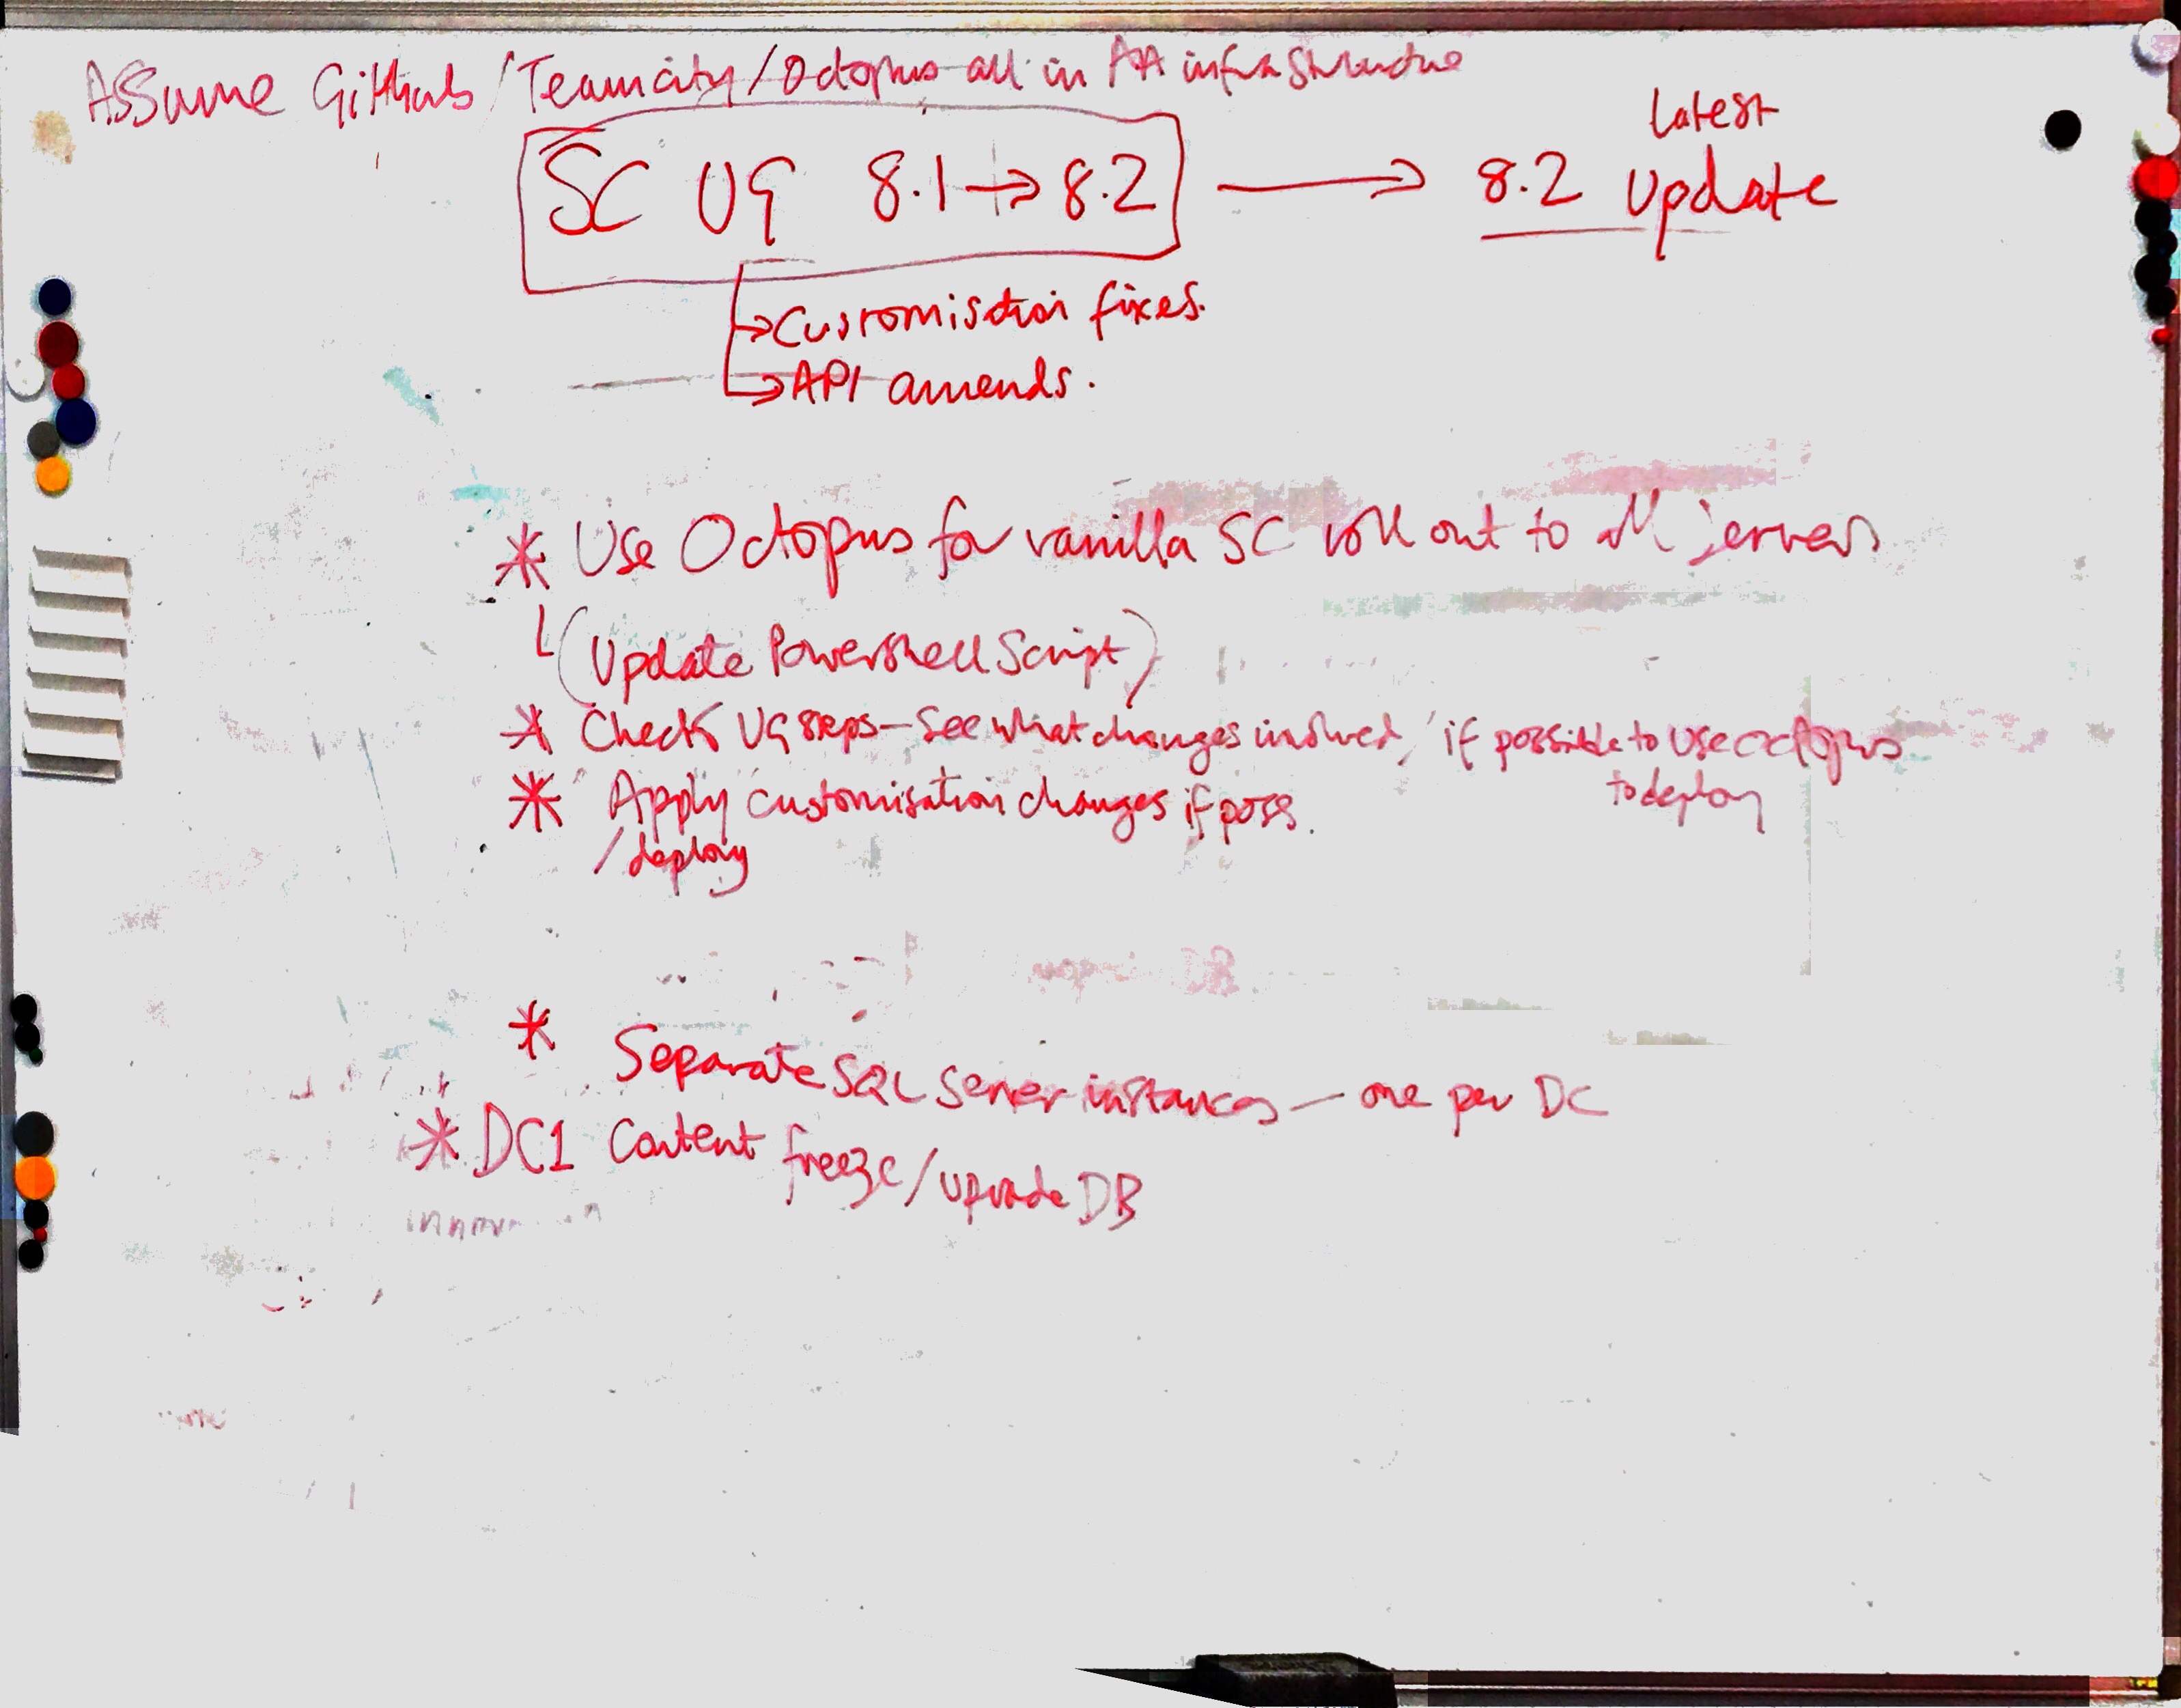 Assume GitHub/Teamcity/Octopus all in AA infrastructure
SC UG 8.1→8.2 → 8.2 Latest Update
→Customisation fixes.
→API amends.
* Use Octopus for vanilla SC roll out to all servers
(Update Powershell Script)
* Check UG steps – See what changes involved, if possible to use octopus
to deploy
* Apply customisation changes if poss.
/deploy
* Separate SQL Server instances – one per DC
* DC1 Content freeze/upgrade DB